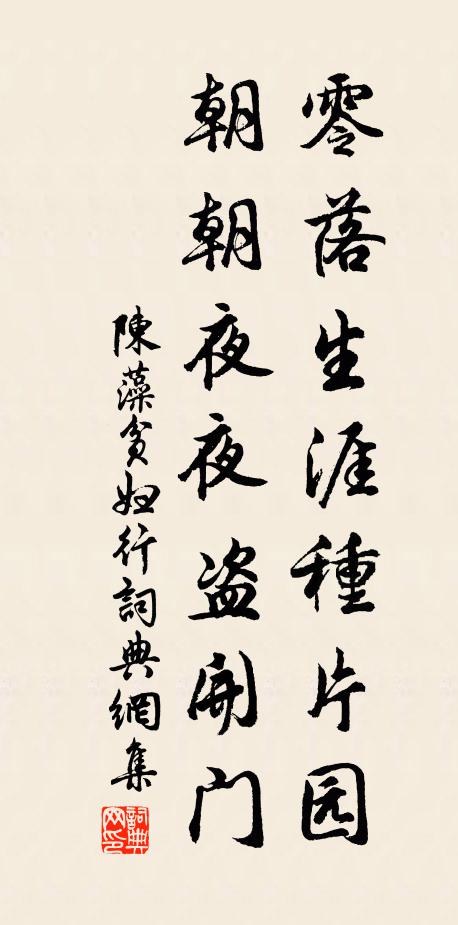 零落生涯種片园
朝朝夜夜盗開门
陳藻貧妇行詞典網集
詞典网印